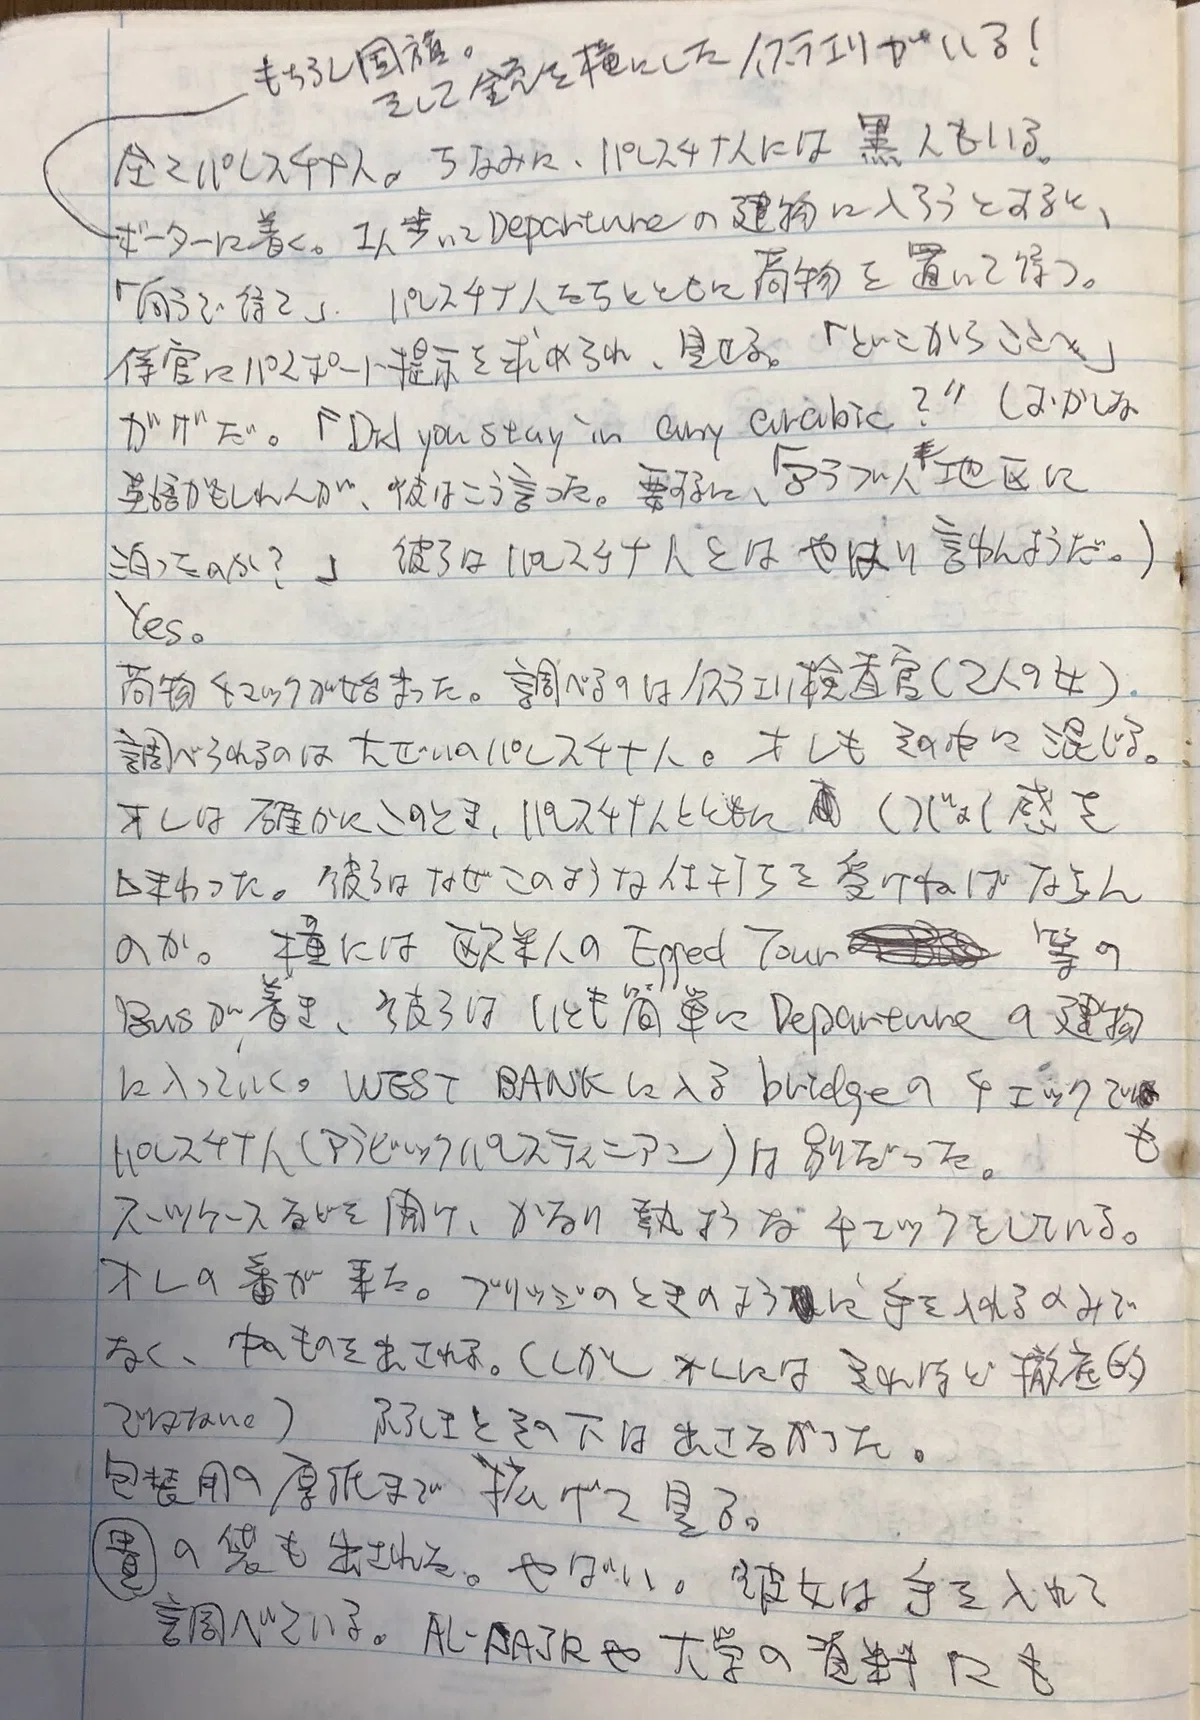 もちろん国旗。
そして銃を横にしたイスラエリがいる!
全てパレスチナ人。ちなみに、パレスチナ人には黒人もいる。
ボーダーに着く。1人歩いてDepartureの建物に入ろうとすると、
「向うで待て」パレスチナ人たちとともに荷物を置いて待つ。
係官にパスポート提示を求められ、見せる。「どこからどこへ」
がゲだ。「Did you stay in any arabic?" (おかしな
英語かもしれんが、彼はこう言った。要するに、「アラブ人地区に
泊ったのか?」彼らはパレスチナ人とはやはり言わんようだ。)
Yes。
荷物チェックが始まった。調べるのはイスラエリ検査官(2人の女)。
調べられるのは大ぜいのパレスチナ人。オレもその中に混じる。
オレは確かにこのとき、パレスチナ人とともにくつじょく感を
味わった。彼らはなぜこのような仕打ちを受けねばならん
のか。横には欧米人のEgged Tour 等の
Busが着き、彼らはいとも簡単にDepartureの建物
に入っていく。WEST BANKに入るbridgeのチェックでも
パレスチナ人(アラビックパレスティニアン)は別だった。
スーツケースなどを開け、かなり執ようなチェックをしている。
オレの番が来た。ブリッジのときのように手を入れるのみで
なく、中のものを出される。(しかしオレにはそれほど徹底的
ではない) とその下は出さなかった。
包装用の厚紙まで拡げて見る。
の袋も出される。やばい。彼女は手を入れて
調べている。AL-FAJRや大学の資料にも